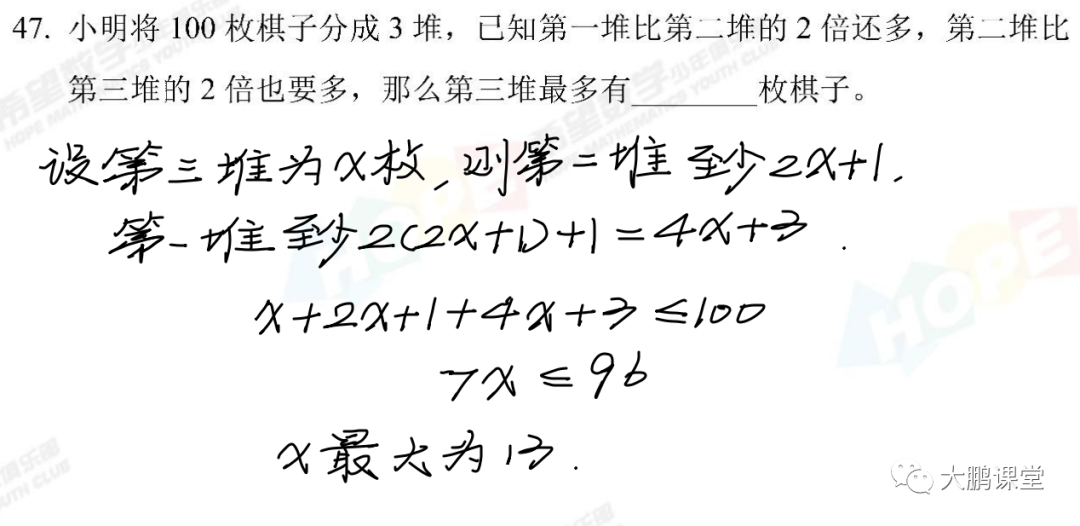 47. 小明将 100 枚棋子分成 3 堆，已知第一堆比第二堆的 2 倍还多，第二堆比
第三堆的 2 倍也要多，那么第三堆最多有________枚棋子。
设第三堆为x枚,则第二堆至少2x+1.
第一堆至少2(2x+1)+1=4x+3.
x+2x+1+4x+3≤100
7x≤96
x最大为13.
HOPE
HOPE
大鹏课堂